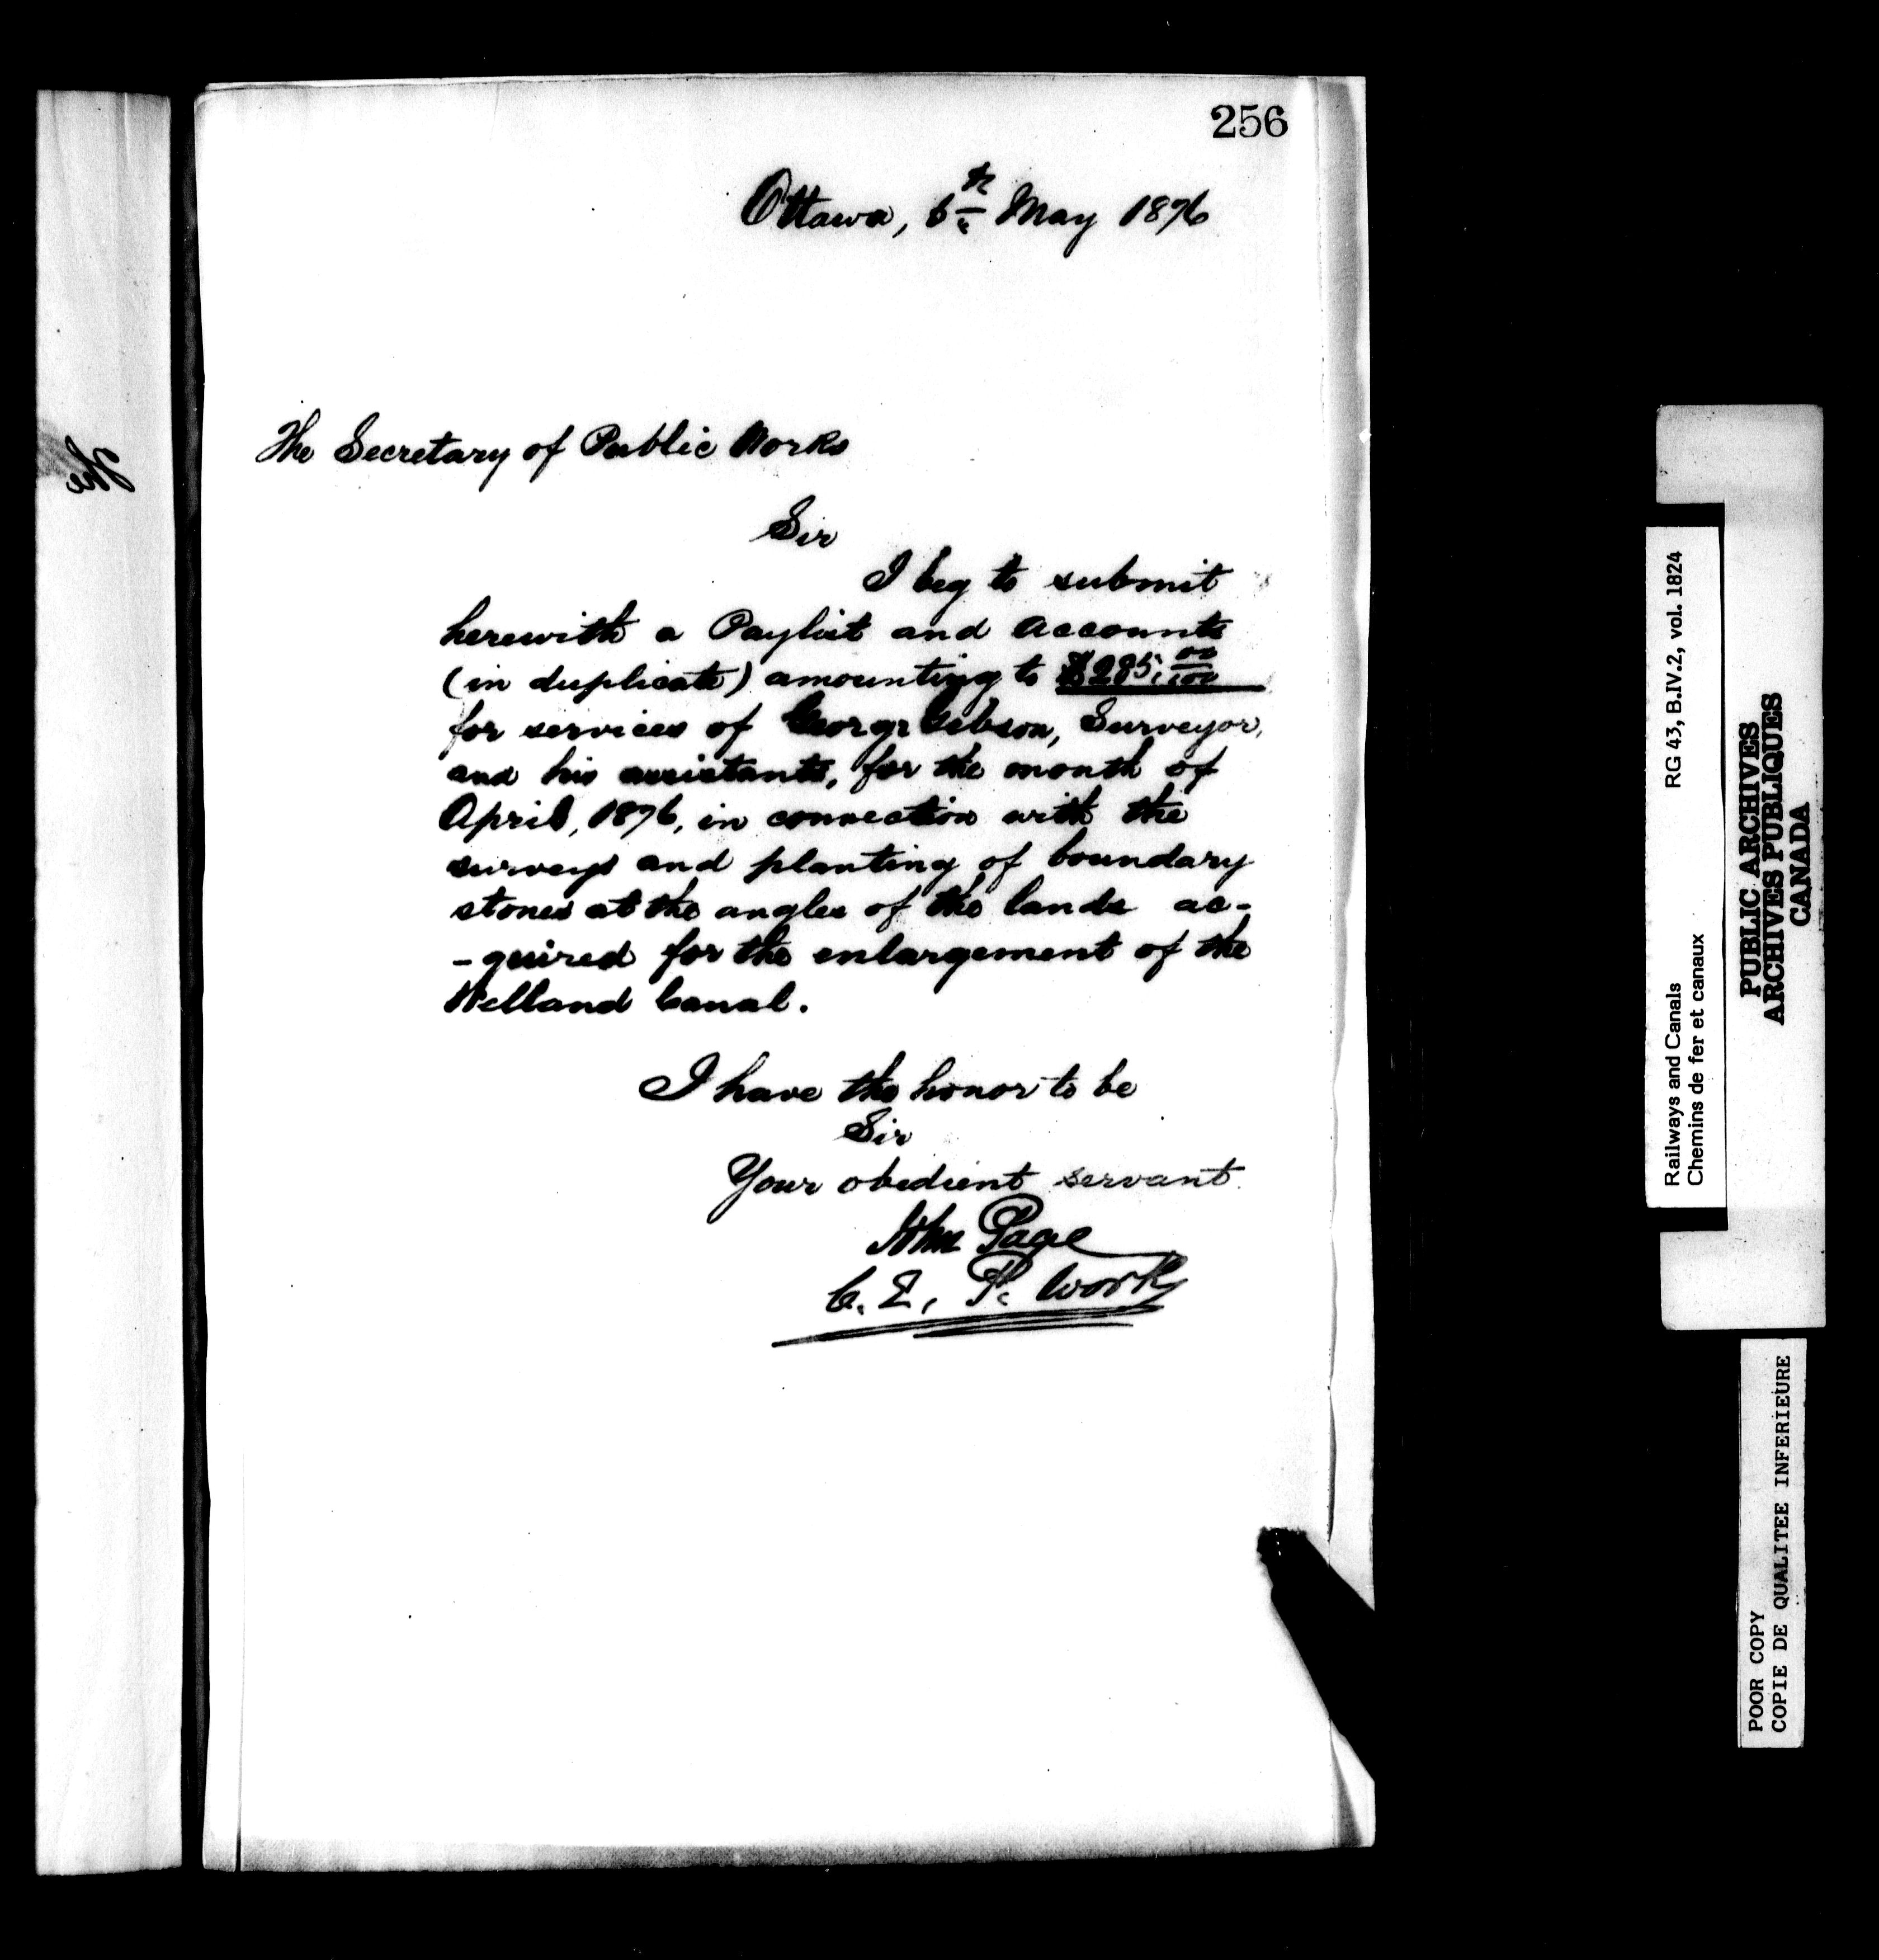 256
Ottawa, 6th May 1876
The Secretary of Public Works
Sir
I beg to submit
herewith a Paylist and Accounts
(in duplicate) amounting to $285.00/100
for services of George Gibson, Surveyor,
and his assistants, for the month of
April, 1876, in connection with the
surveys and planting of boundary
stones at the angles of the lands ac-
-quired for the enlargement of the
Welland Canal.
I have the honor to be
Sir
Your obedient servant
John Page
C. E, P. Works
The
Railways and Canals RG 43, B.IV.2, vol. 1824
Chemins de fer et canaux
PUBLIC ARCHIVES
ARCHIVES PUBLIQUES
CANADA
POOR COPY
COPIE DE QUALITEE INFERIEURE